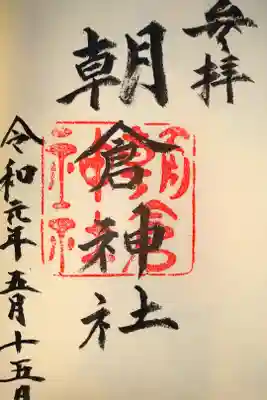 奉拝
朝倉神社
朝倉神社
令和元年五月十五日